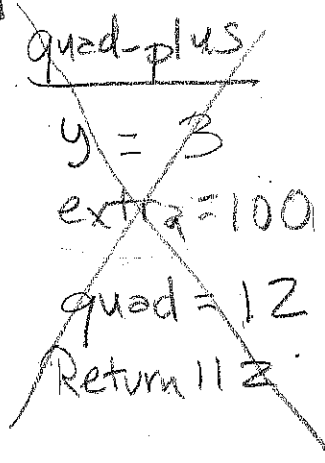 quad-plus
y = 3
extra = 100
quad = 12
Return 112